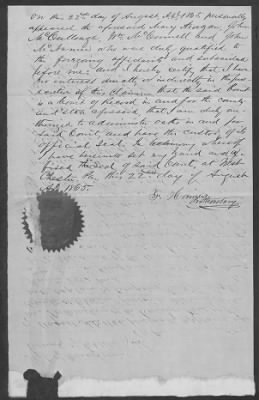 On this 22nd day of August AD 1865 personally
appeared the aforesaid Mary Meagan, John
McCullough, Wm McConnell and John
Mc who was duly qualified to
the foregoing affidavits and subscribed
before me: and I hereby certify that I have
no interest directly or indirectly in the prose-
cution of this claim that the said Court
is a Court of Record in and for the county
and state aforesaid that I am duly au-
thorized to administer oaths in and for
said Court and have the custody of its
Official Seal. In testimony whereof
I have hereunto set my hand and af-
fixed the seal of said Court, at West
Chester, Pa this 22nd day of August
AD, 1865.
Prothonotary